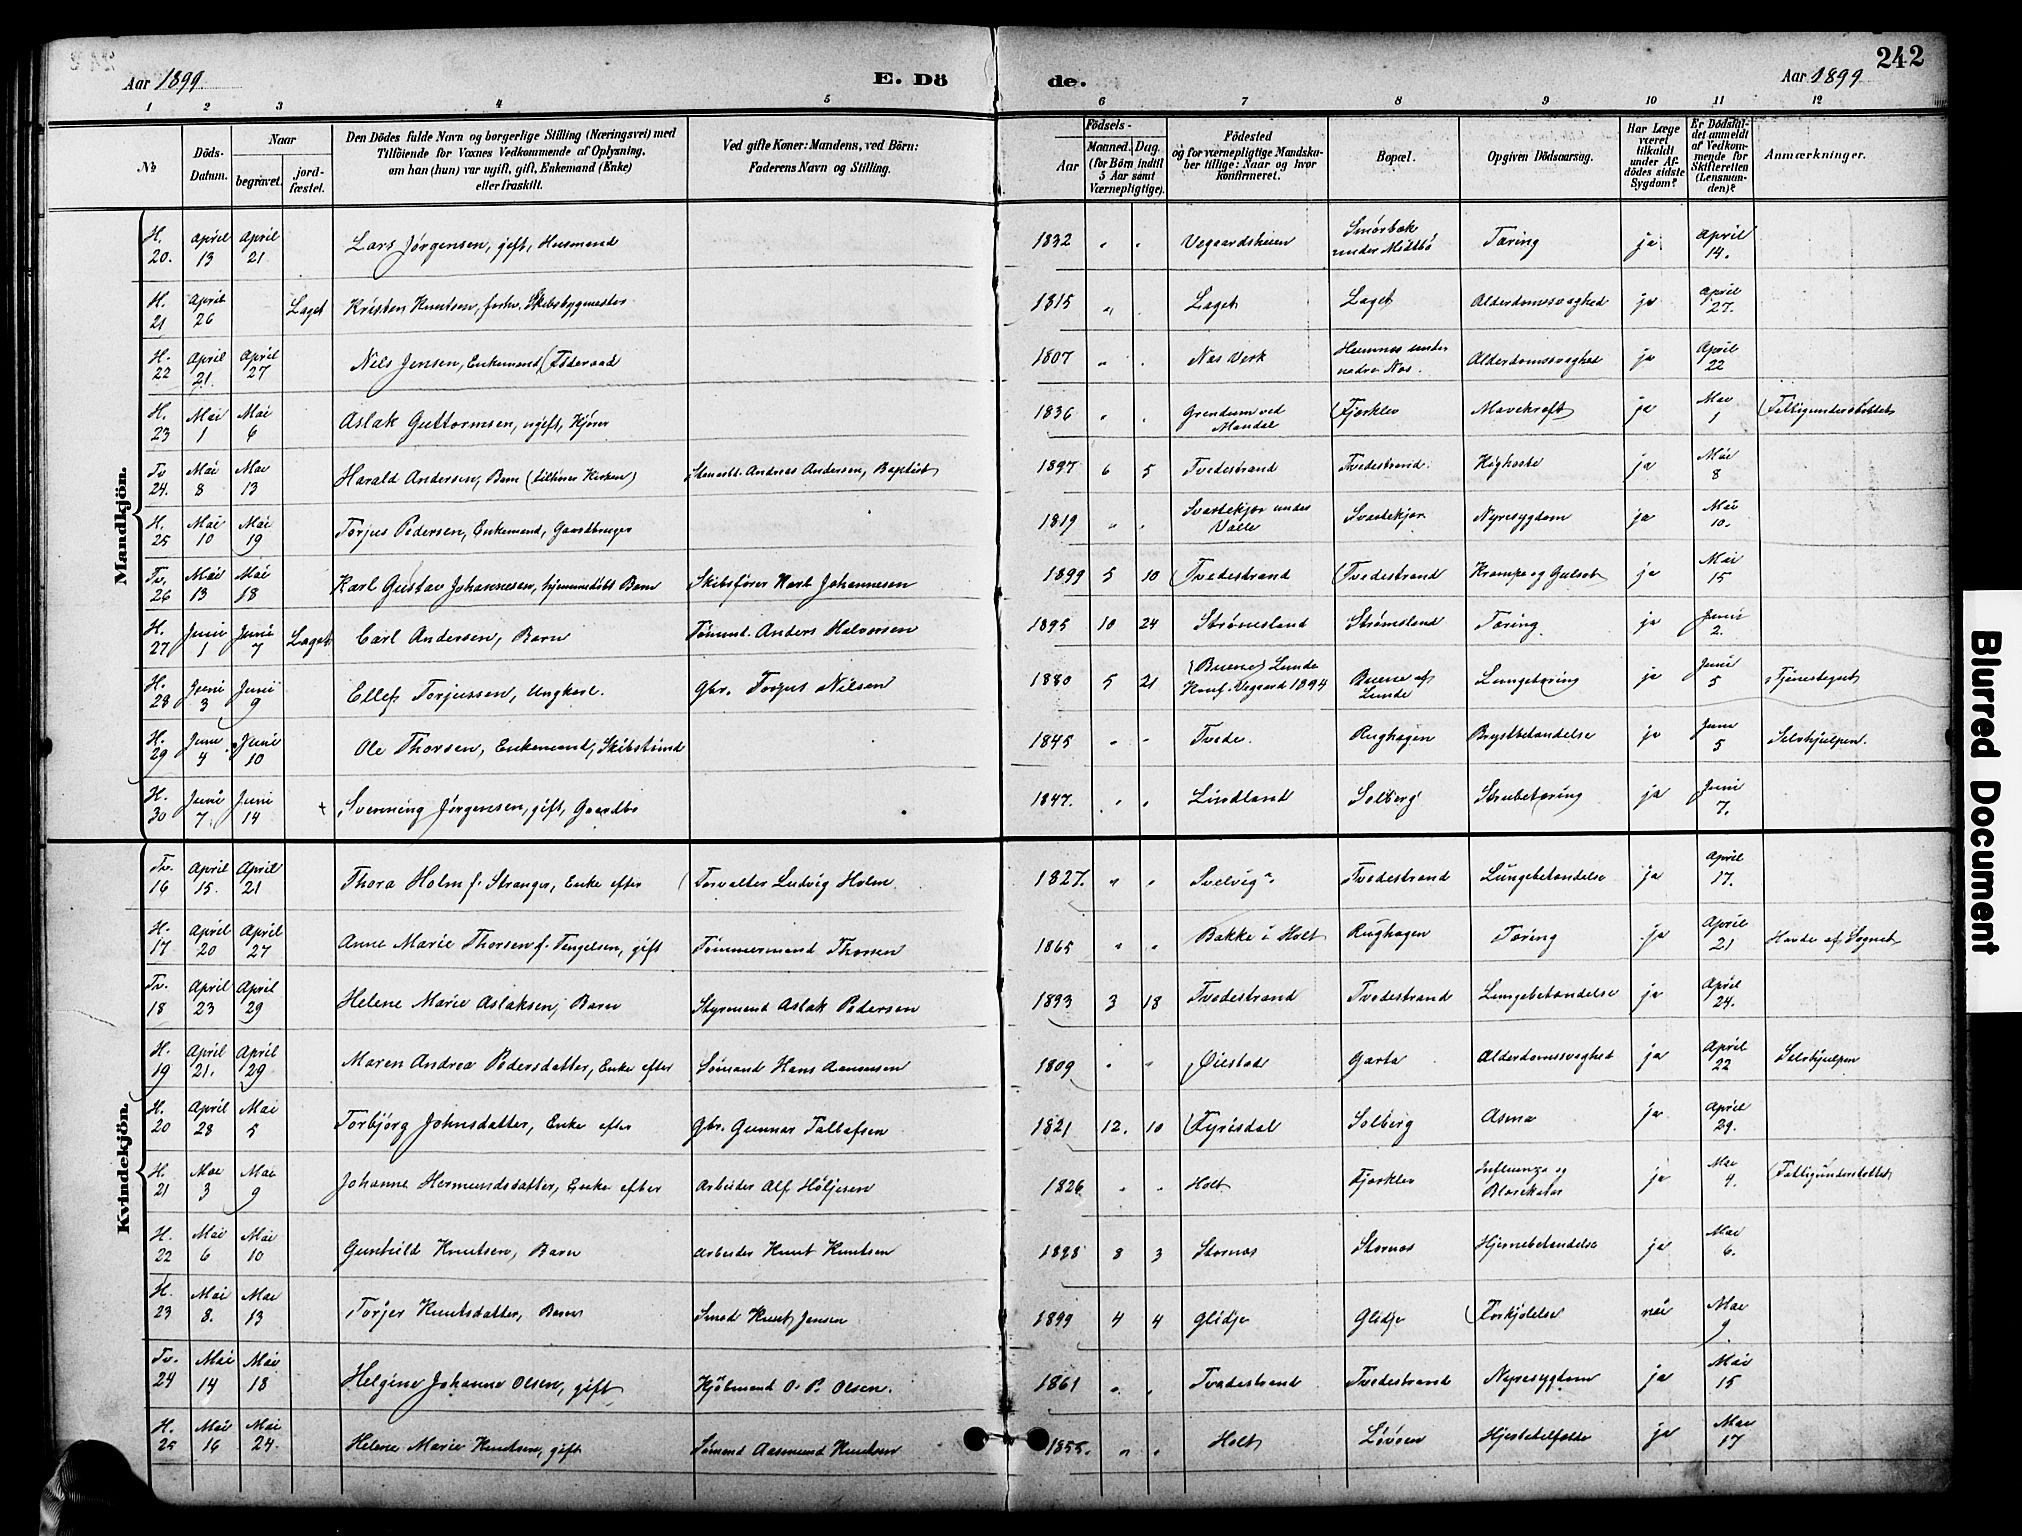 242
Aar 1899 E. Dö de. Aar 1899
1 2 3 4 5 6 7 8 9 10 11 12
№ Döds-Datum. Naar begravet. jord-fæstet. Den Dödes fulde Navn og borgerlige Stilling (Næringsvei) med Tilföiende for Voxnes Vedkommende af Oplysning, om han (hun) var ugift, gift, Enkemand (Enke) eller fraskilt. Ved gifte Koner: Mandens, ved Börn: Faderens Navn og Stilling. Födsels- Aar Maaned. Dag. (for Börn indtil 5 Aar samt Værnepligtige). Födested og for værnepligtige Mandskaber tillige: Naar og hvor konfirmeret. Bopæl. Opgiven Dödsaarsag. Har Læge været tilkaldt under Afdödes sidste Sygdom? Er Dödsfaldet anmeldt af Vedkommende for Skifteretten (Lensmanden)? Anmærkninger.
Mandkjön.
H. 20. April 13 April 21 Lars Jørgensen, gift, Husmand 1832 " " Vegaardsheien Smørbæk under Midtbø Tæring ja April 14.
H. 21 April 26 Laget Kristen Knutsen, forhv. Skibsbygmester 1815 " Laget Laget Alderdomssvaghed ja April 27.
H. 22 April 21. April 27 Nils Jensen, Enkemand, Föderaad 1807 " " Næs Verk under nedre Næs. Alderdomssvaghed ja April 22
H. 23 Mai 1 Mai 6 Aslak Guttormsen, ugift, Kjører 1836 " " Grendum ved Mandal Fjærklev Mavekræft ja Mai 1 Fattigunderstöttet
Tv. 24. Mai 8 Mai 13 Harald Andersen, Barn Andreas Andersen, Baptist 1897 6 5 Tvedestrand Tvedestrand. Kighoste ja Mai 8
H. 25 Mai 10 Mai 19 Torjus Pedersen, Enkemand, Gaardbruger 1819 " " Svartekjær under Valle Svartekjær Nyresygdom ja Mai 10.
Tv. 26 Mai 13 Mai 18 Karl Gustav Johannesen, hjemmedöbt Barn Skibsfører Karl Johannesen 1899 5 10 Tvedestrand Tvedestrand Krampe og Gulsot ja Mai 15
H. 27 Juni 1 Juni 7 Laget Carl Andersen, Barn Tømmd. Anders Halvorsen 1895 10 24 Strømsland Strømsland Tæring ja Juni 2.
H. 28 Juni 3 Juni 9 Ellef Torjussen, Ungkarl. Gbr. Torjus Nilsen 1880 5 21 Buene, Lunde Konf. Vegaard 1894 Buene af Lunde Lungetæring ja Juni 5 Tjenestegut
H. 29 Juni 4 Juni 10 Ole Thorsen, Enkemand, Skibstømd 1845 " " Tvede. Rughagen Brystbetændelse ja Juni 5 Selvhjulpen.
H. 30 Juni 7 Juni 14 + Svenning Jørgensen, gift, Gaardbr 1847. " " Lindland Solberg Strubetæring ja Juni 7.
Kvindekjön.
Tv. 16 April 15. April 21 Thora Holm f. Stranger, Enke efter Forvalter Ludvig Holm 1827. " " Svelvig Tvedestrand Lungebetændelse ja April 17.
H. 17 April 20 April 27 Anne Marie Thorsen f. Tengelsen, gift Tømmermand Thorsen 1865 " " Bakke i Holt Rughagen Tæring ja April 21 Havde af Sognet
Tv. 18 April 23 April 29 Helene Marie Aslaksen, Barn Styrmand Aslak Pedersen 1893 3 18 Tvedestrand Tvedestrand Lungebetændelse ja April 24.
H. 19 April 21. April 29 Maren Andrea Pedersdatter, Enke efter Sømand Hans Aamonsen 1809 " " Øiestad Garta Alderdomssvaghed ja April 22 Selvhjulpen
H. 20 April 28 Mai 5 Torbjörg Johnsdatter, Enke efter Gbr. Gunnar Tallafsen 1821 12. 10 Fyrisdal Solberg Asma ja April 29.
H. 21 Mai 3 Mai 9 Johanne Hermundsdatter, Enke efter Arbeider Alf Höljesen 1826 " " Holt Fjærklev Influenza og Blærekatar ja Mai 4. Fattigunderstöttet
H. 22 Mai 6 Mai 10 Gunhild Knutsen, Barn Arbeider Knut Knutsen 1898 8 3 Stornæs Stornæs Hjernebetændelse ja Mai 6.
H. 23 Mai 8. Mai 13 Torjer Knutsdatter, Barn Smed Knut Jensen 1899 4 4 Glidje Glidje Forkjölelse nei Mai 9
Tv. 24 Mai 14 Mai 18 Helgine Johanne Olsen, gift Kjöbmand O. P. Olsen. 1861 " " Tvedestrand Tvedestrand Nyresygdom ja Mai 15
H. 25 Mai 16 Mai 24. Helene Marie Knutsen, gift Sømand Aasmund Knutsen 1855. " " Holt Løvøen Hjertefeil ja Mai 17
Blurred Document